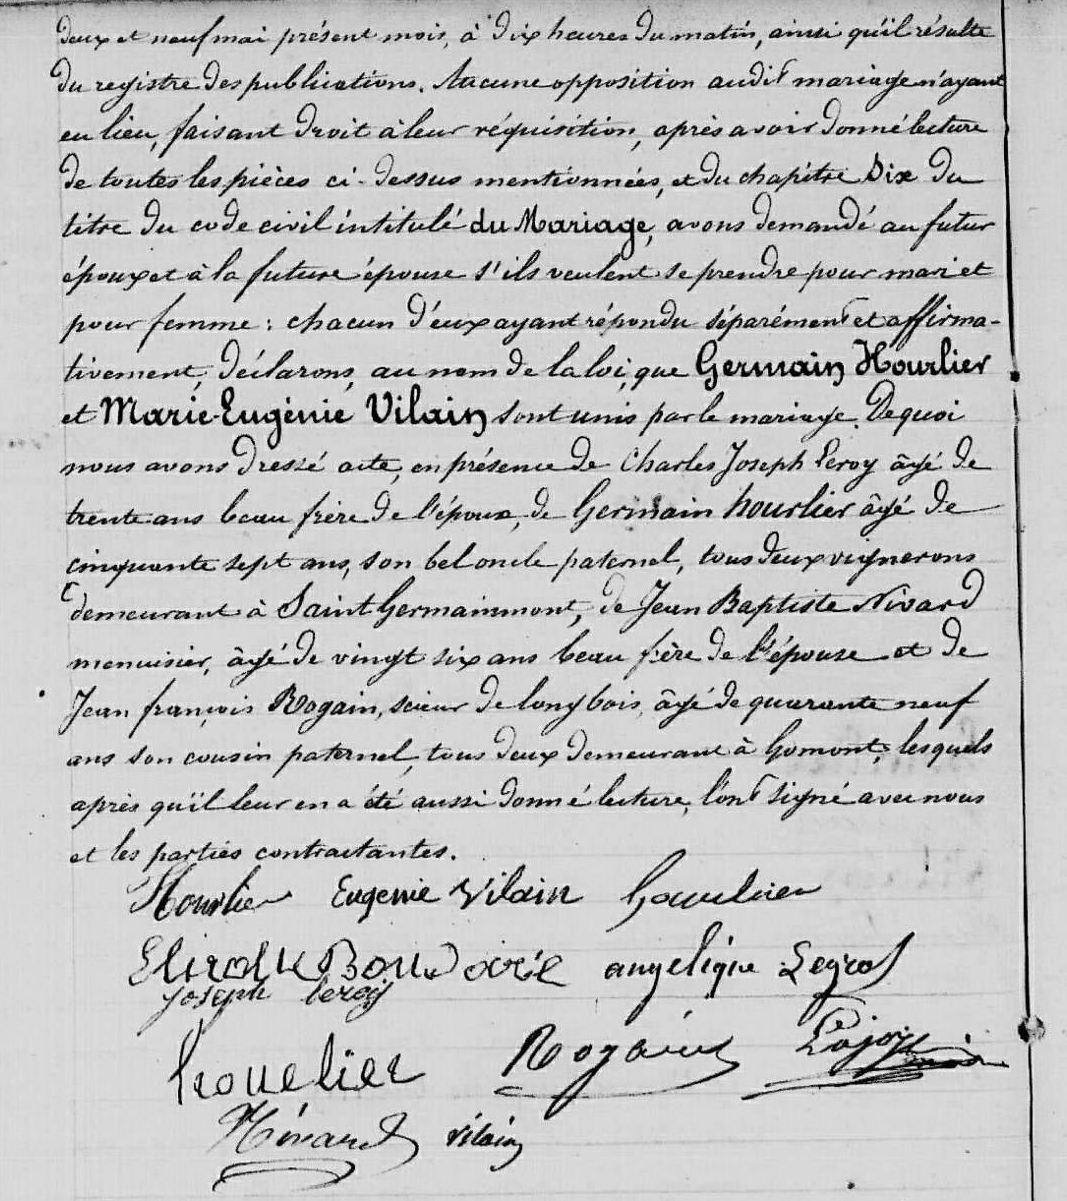 deux et neuf mai présent mois, à dix heures du matin, ainsi qu'il résulte
du registre des publications. Aucune opposition audit mariage n'ayant
eu lieu, faisant droit à leur réquisition, après avoir donné lecture
de toutes les pièces ci-dessus mentionnées, et du chapitre Six du
titre du code civil intitulé du Mariage, avons demandé au futur
époux et à la future épouse s'ils veulent se prendre pour mari et
pour femme : chacun d'eux ayant répondu séparément et affirma-
tivement, déclarons, au nom de la loi, que Germain Hourlier
et Marie-Eugénie Vilain sont unis par le mariage. De quoi
nous avons dressé acte, en présence de Charles Joseph Leroy âgé de
trente ans beau frère de l'époux, de Germain hourlier âgé de
cinquante sept ans, son bel oncle paternel, tous deux vignerons
demeurant à Saint Germainmont, de Jean Baptiste Nivard
menuisier, âgé de vingt six ans beau frère de l'épouse et de
Jean françois Rogain, scieur de long bois, âgé de quarante neuf
ans son cousin paternel, tous deux demeurant à Gomont, lesquels
après qu'il leur en a été aussi donné lecture, l'ont signé avec nous
et les parties contractantes.
Hourlier Eugenie Vilain hourlier
angelique Legros
Joseph leroy
hourlier Rogain
Vilain